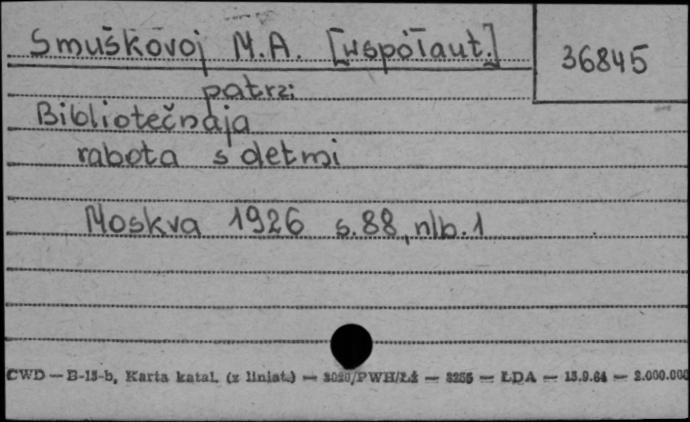 Smuškovoj M.A. [współaut.]
36845
patrz:
Bibliotečnaja
rabota s detmi
Moskva 1926 s.88, nlb.1
CWD — B-15-b, Karta katal. (z liniat.) — PWH/Łź — — ŁDA — 15.9.64 — 2.000.000